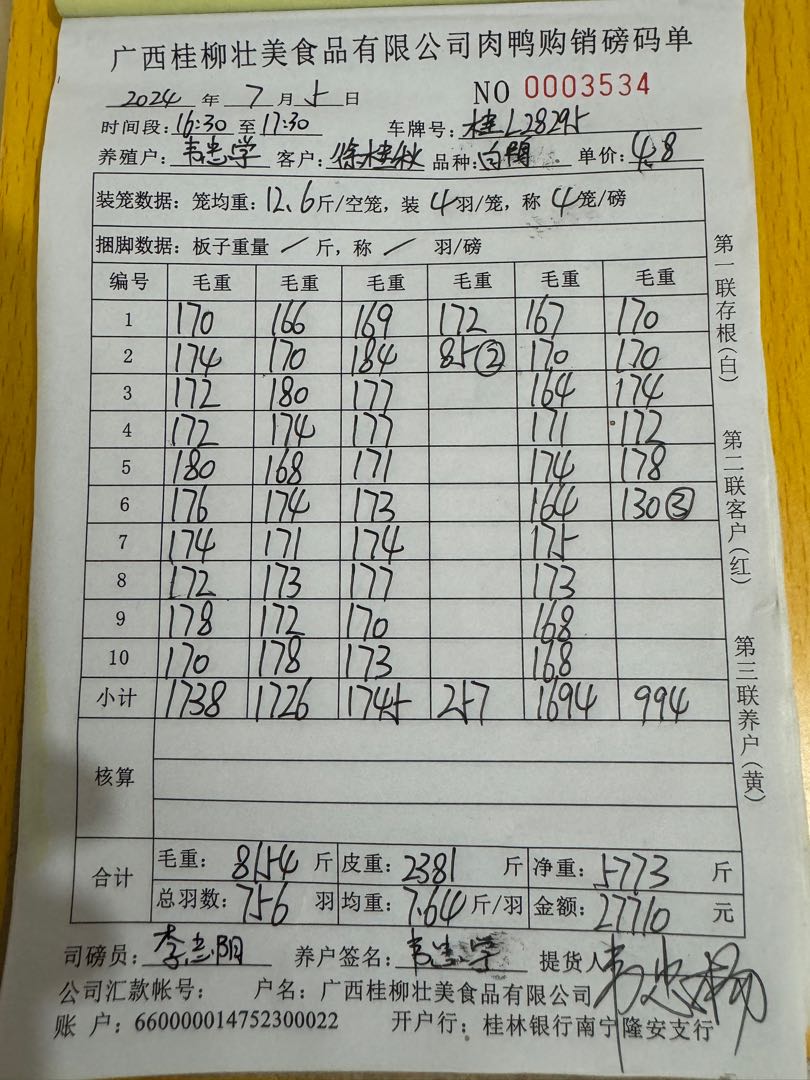 广西桂柳壮美食品有限公司肉鸭购销磅码单
2024 年 7 月 5 日 NO 0003534
时间段: 16:30 至 17:30 车牌号: 桂L28295
养殖户: 韦忠学 客户: 徐桂秋 品种: 白鸭 单价: 4.8
装笼数据: 笼均重: 12.6 斤/空笼, 装 4 羽/笼, 称 4 笼/磅
捆脚数据: 板子重量 / 斤, 称 / 羽/磅
编号 毛重 毛重 毛重 毛重 毛重 毛重
1 170 166 169 172 167 170
2 174 170 184 85② 170 170
3 172 180 177 164 174
4 172 174 177 171 172
5 180 168 171 174 178
6 176 174 173 164 130③
7 174 171 174 175
8 172 173 177 173
9 178 172 170 168
10 170 178 173 168
小计 1738 1726 1745 257 1694 994
核算
合计 毛重: 8154 斤 皮重: 2381 斤 净重: 5773 斤
总羽数: 756 羽 均重: 7.64 斤/羽 金额: 27710 元
司磅员: 李志阴 养户签名: 韦忠学 提货人
公司汇款帐号: 户名: 广西桂柳壮美食品有限公司
账 户: 660000014752300022 开户行: 桂林银行南宁隆安支行
第一联存根(白)
第二联客户(红)
第三联养户(黄)